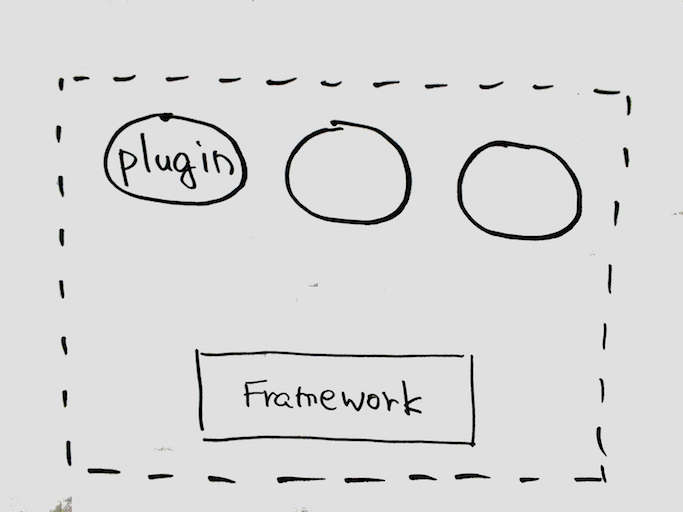 plugin
Framework